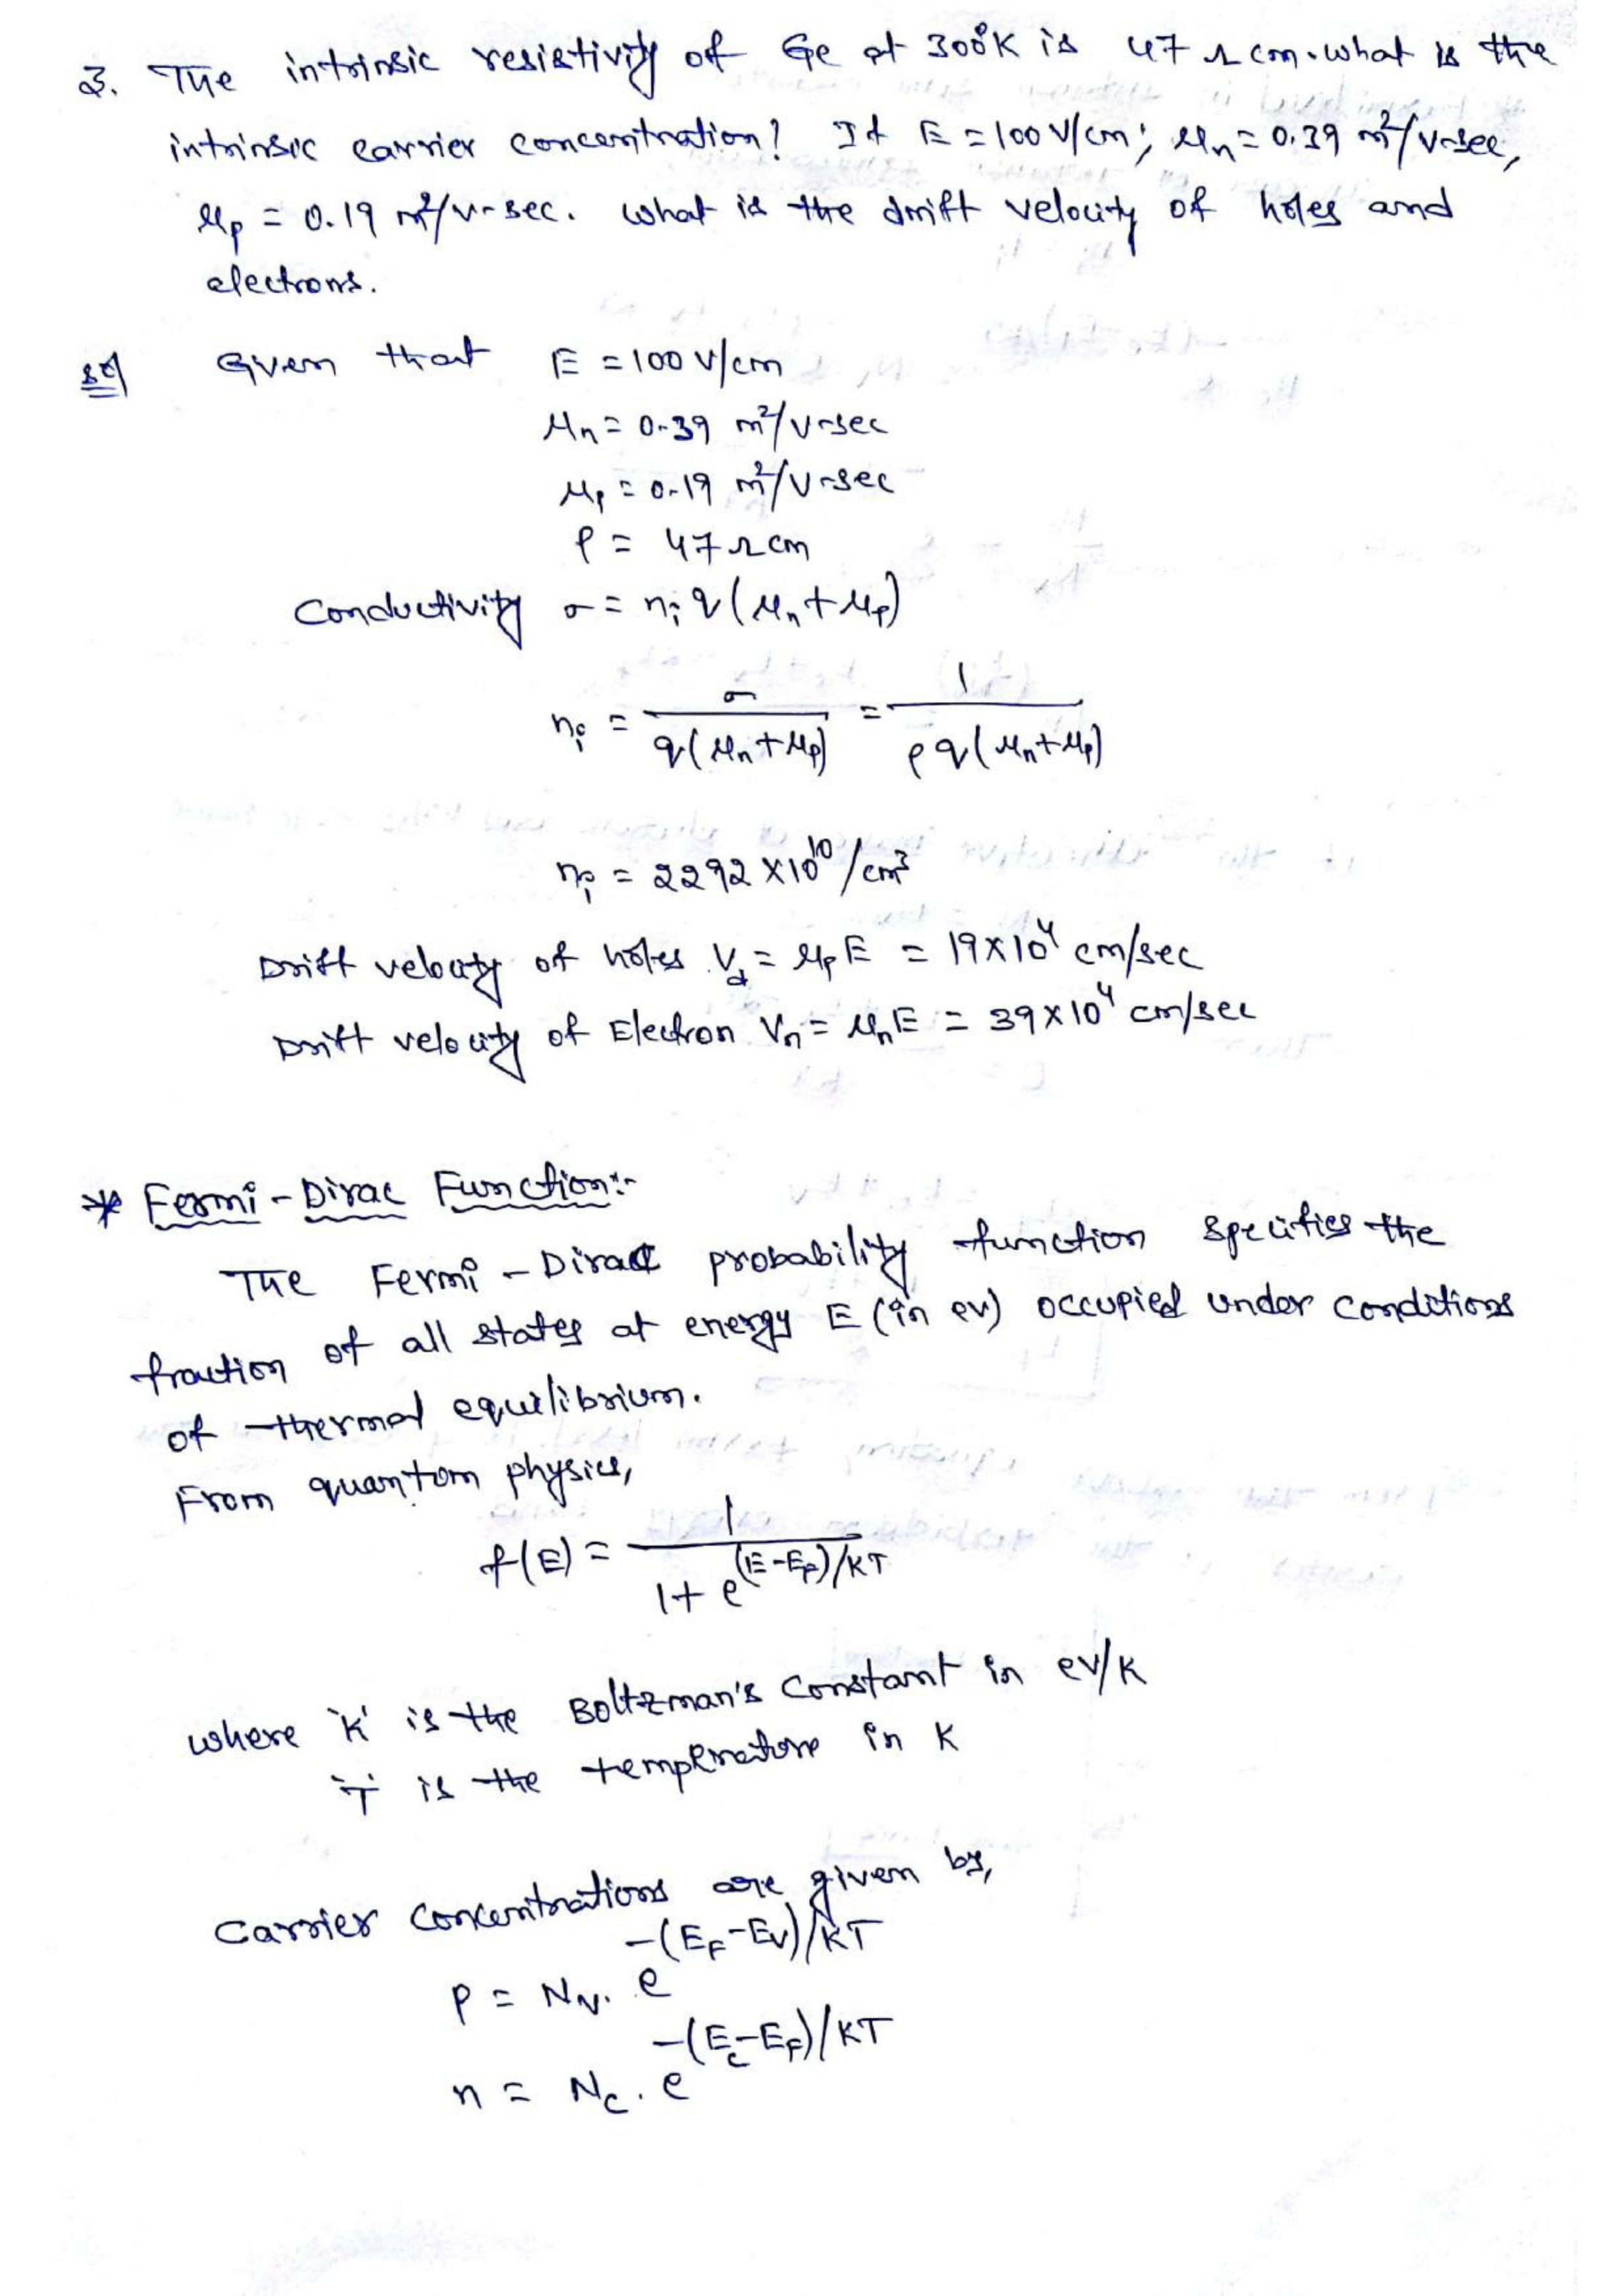 3. The intrinsic resistivity of Ge at 300°K is 47 Ω cm. what is the
intrinsic carrier concentration? If E = 100 V/cm; μn = 0.39 m²/v-sec,
μp = 0.19 m²/v-sec. what is the drift velocity of holes and
electrons.
sol Given that E = 100 V/cm
μn = 0.39 m²/v-sec
μp = 0.19 m²/v-sec
ρ = 47 Ω cm
Conductivity σ = ni q (μn + μp)
ni = σ / q(μn + μp) = 1 / ρ q (μn + μp)
ni = 2292 × 10¹⁰ /cm³
Drift velocity of holes Vd = μp E = 19 × 10⁴ cm/sec
Drift velocity of Electron Vn = μn E = 39 × 10⁴ cm/sec
* Fermi - Dirac Function:-
The Fermi - Dirac probability function specifies the
fraction of all states at energy E (in ev) occupied under conditions
of thermal equilibrium.
From quantum physics,
f(E) = 1 / 1 + e^(E - EF)/KT
where 'K' is the Boltzman's constant in ev/K
'T' is the temperature in K
Carrier concentrations are given by,
p = Nv . e^-(EF - Ev)/KT
n = Nc . e^-(Ec - EF)/KT